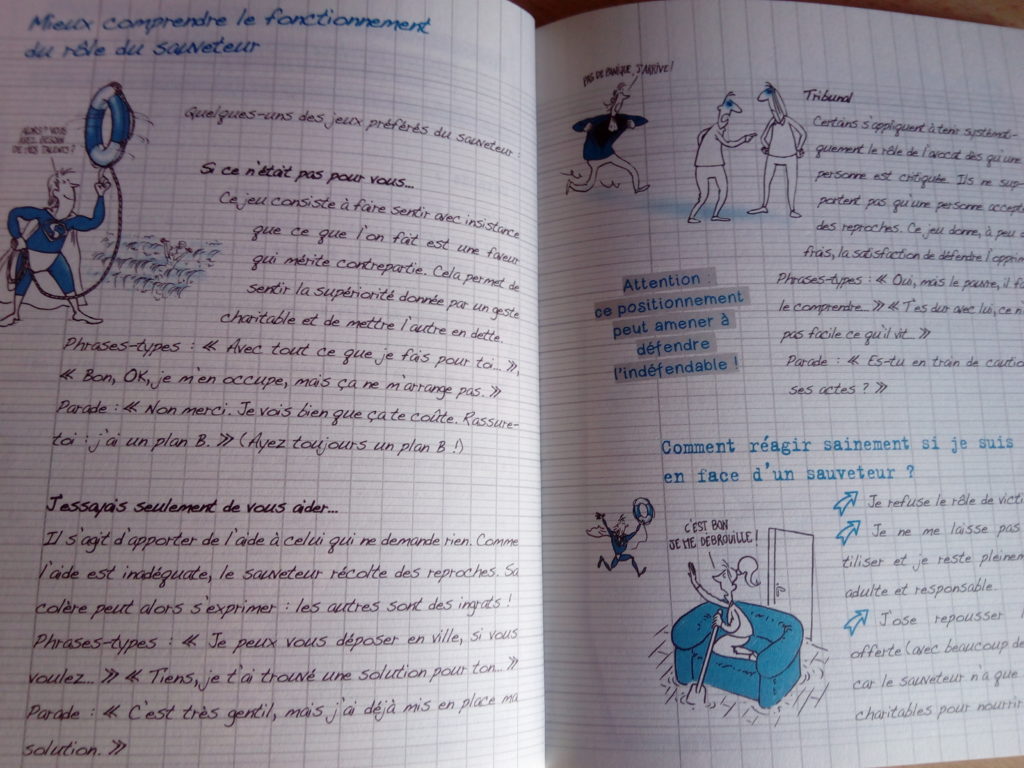 Mieux comprendre le fonctionnement
du rôle du sauveteur
ALORS? VOUS
AVEZ BESOIN
DE MES TALENTS?
Quelques-uns des jeux préférés du sauveteur :
Si ce n'était pas pour vous...
Ce jeu consiste à faire sentir avec insistance
que ce que l'on fait est une faveur
qui mérite contrepartie. Cela permet de
sentir la supériorité donnée par un geste
charitable et de mettre l'autre en dette.
Phrases-types : « Avec tout ce que je fais pour toi... »,
« Bon, OK, je m'en occupe, mais ça ne m'arrange pas. »
Parade : « Non merci. Je vois bien que ça te coûte. Rassure-
toi : j'ai un plan B. » (Ayez toujours un plan B !)
J'essayais seulement de vous aider...
Il s'agit d'apporter de l'aide à celui qui ne demande rien. Comme
l'aide est inadéquate, le sauveteur récolte des reproches. Sa
colère peut alors s'exprimer : les autres sont des ingrats !
Phrases-types : « Je peux vous déposer en ville, si vous
voulez... » « Tiens, je t'ai trouvé une solution pour ton... »
Parade : « C'est très gentil, mais j'ai déjà mis en place ma
solution. »
PAS DE PANIQUE, J'ARRIVE !
Tribunal
Certains s'appliquent à tenir systémati-
quement le rôle de l'avocat dès qu'une
personne est critiquée. Ils ne sup-
portent pas qu'une personne accept
des reproches. Ce jeu donne, à peu d
frais, la satisfaction de défendre l'opprim
Phrases-types : « Oui, mais le pauvre, il fa
le comprendre... » « T'es dur avec lui, ce n'
pas facile ce qu'il vit... »
Parade : « Es-tu en train de cautio
ses actes ? »
Attention :
ce positionnement
peut amener à
défendre
l'indéfendable !
Comment réagir sainement si je suis
en face d'un sauveteur ?
Je refuse le rôle de victi
Je ne me laisse pas
tiliser et je reste pleinem
adulte et responsable.
J'ose repousser l
offerte (avec beaucoup de
car le sauveteur n'a que
charitables pour nourrir
C'EST BON
JE ME DÉBROUILLE !